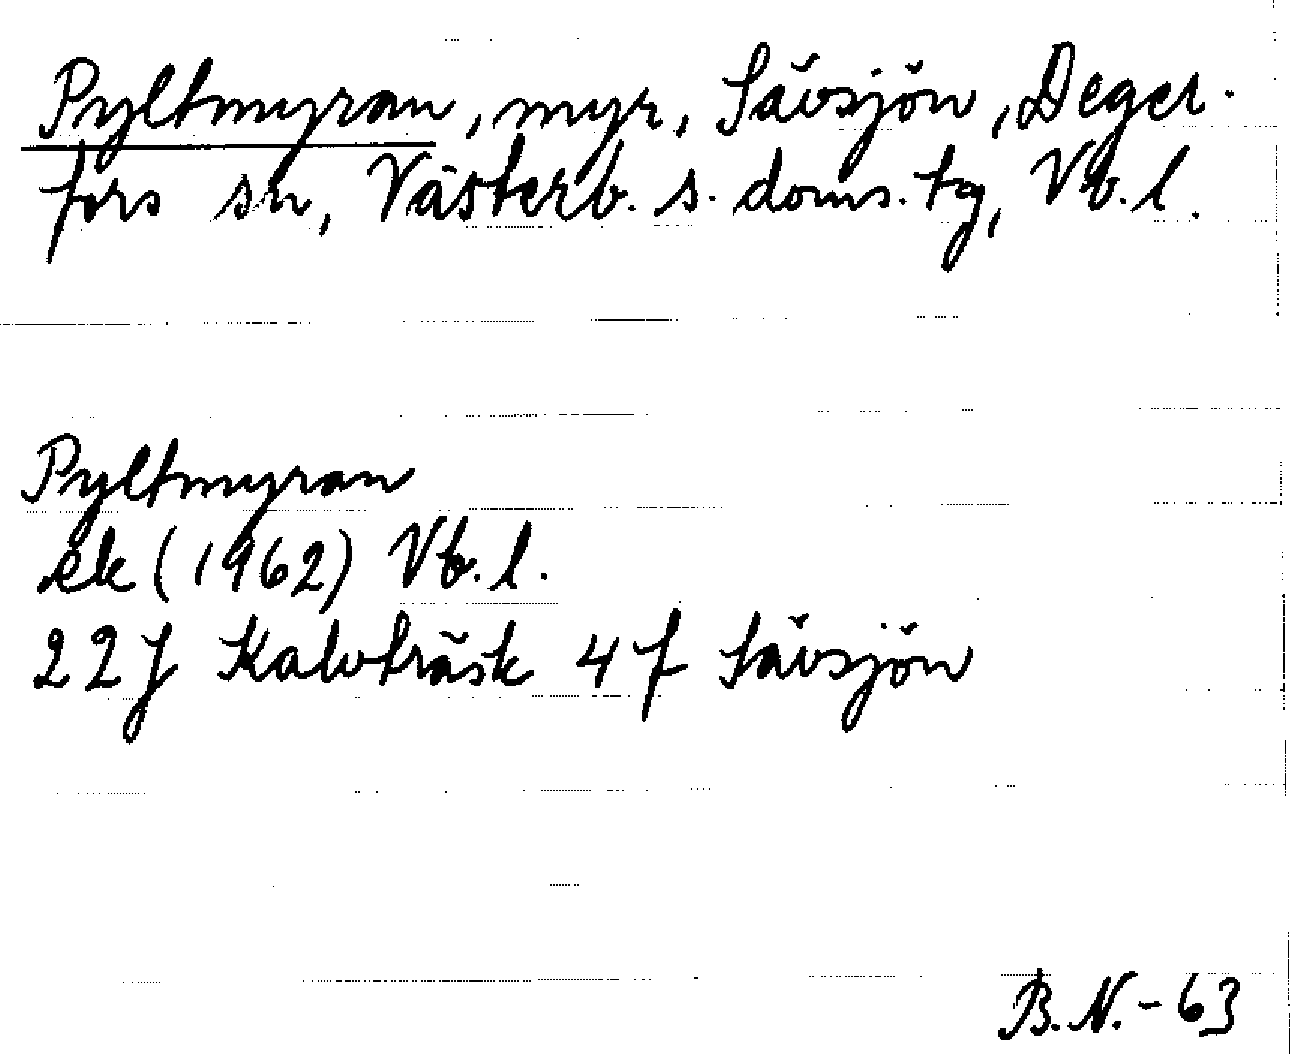 Pyltmyran, myr, Sävsjön, Deger-
fors sn, Västerb. s. doms. tg, Vb. l.
Pyltmyran
ek (1962) Vb. l.
22J Kalvträsk 4f Sävsjön
B.N.-63